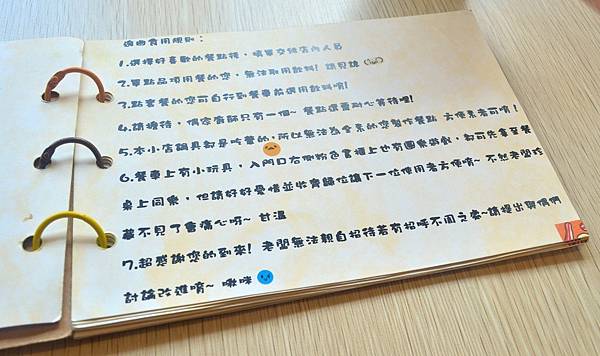 逗曲食用規則：
1.選擇好喜歡的餐點後，填單交給店內人員
2.單點品項用餐的您，無法取用飲料！請見諒
3.點套餐的您可自行到餐車前選用飲料唷！
4.請擔待，偶您廚師只有一個~餐點還要耐心等待哩！
5.本小店鍋具都是吃葷的，所以無法為全素的您製作餐點 方便素者可唷！
6.餐車上有小玩具，入門口右側粉色書櫃上也有團樂遊戲，都可先拿至餐
桌上同樂，但請好好愛惜並收齊歸位讓下一位使用者方便唷~ 不然老闆珍
藏不見了會痛心呀~ 甘溫
7.超感謝您的到來！老闆無法親自招待若有招呼不周之處~請提出與偶們
討論改進唷~ 啾咪